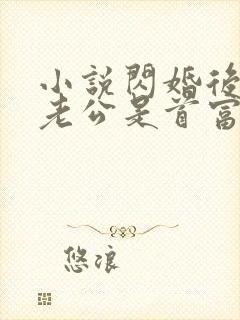 小說閃婚後
老公是首富
悠浪